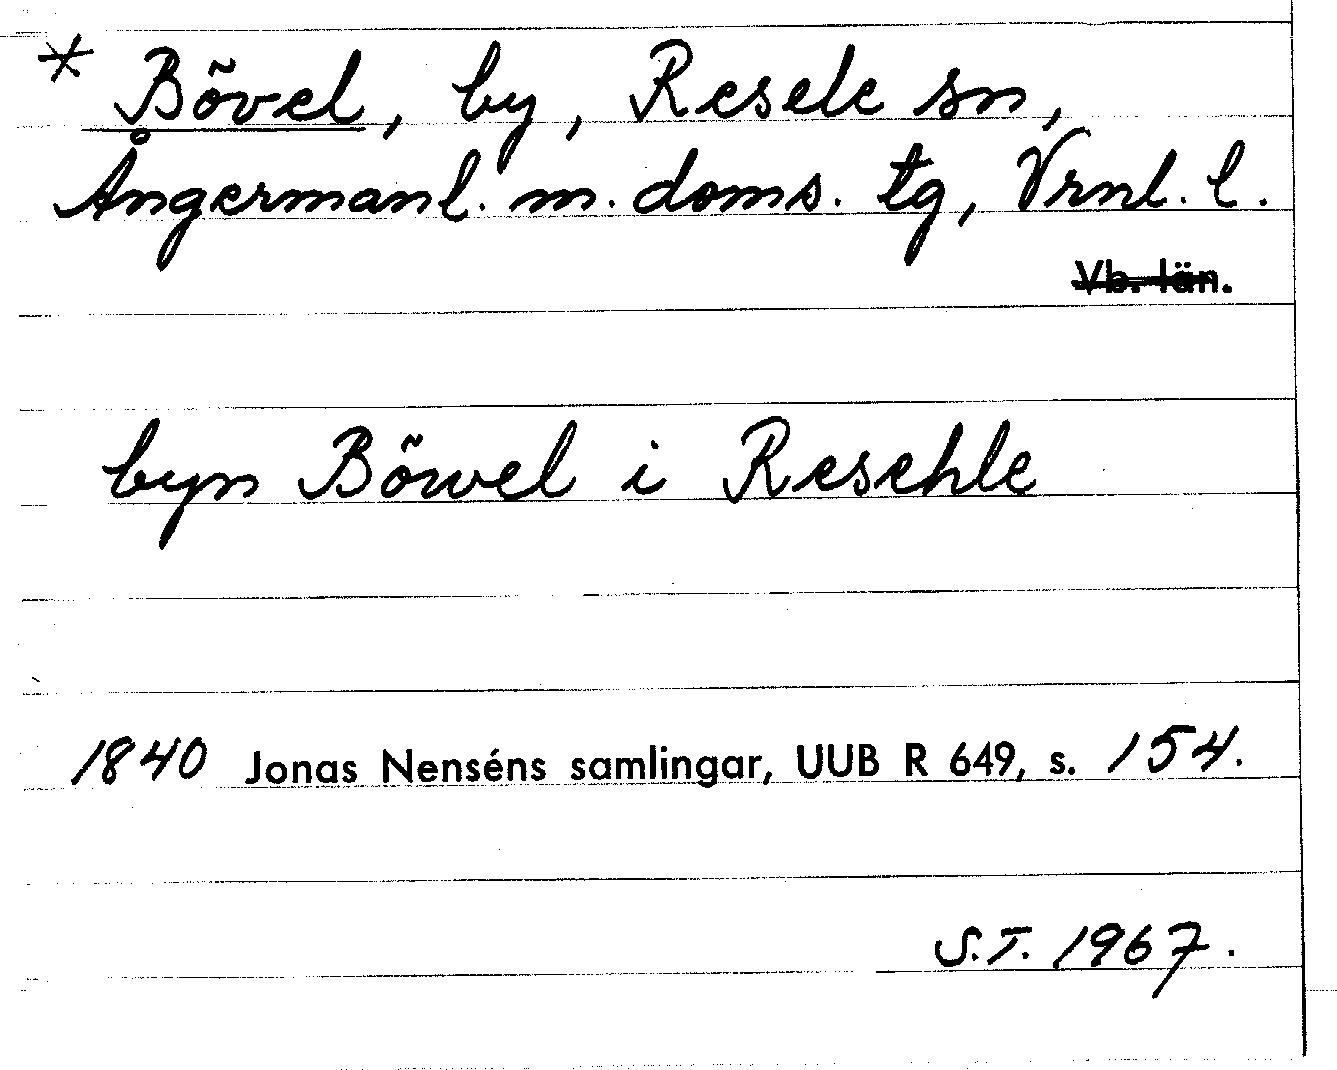 * Bõvel, by, Resele sn,
Ångermanl. m. doms. tg, Vrnl. l.
Vb. län.
byn Bõwel i Resehle
1840 Jonas Nenséns samlingar, UUB R 649, s. 154.
S.T. 1967.